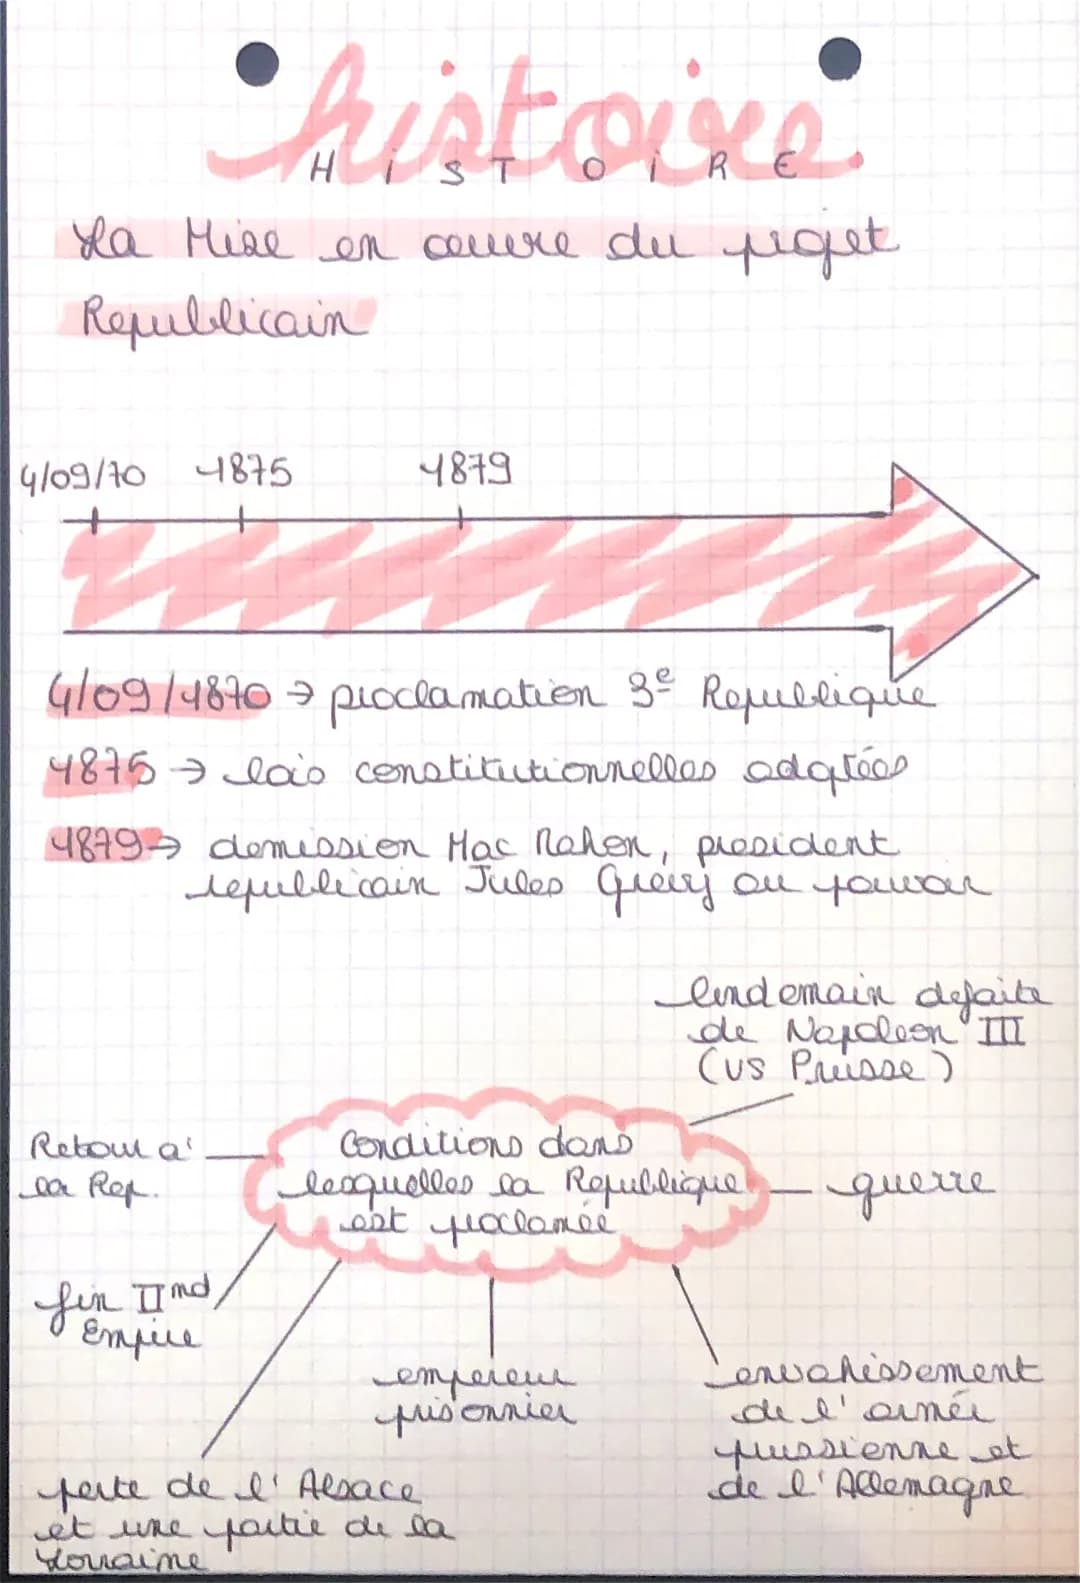 histoire
HiSTOiRE
La Mise en oeuvre du projet
Republicain
4/09/70 1875 1879
4/09/1870 → proclamation 3e Republique
1875 → lois constitutionnelles adoptées
1879 → demission Mac Mahon, president
republicain Jules Grevy au pouvoir
lendemain defaite
de Napoleon III
(vs Prusse)
Retour a
la Rep.
Conditions dans
lesquelles la Republique
est proclamée
guerre
fin IInd
Empire
empereur
prisonnier
envahissement
de l'armée
prussienne et
de l'Allemagne
perte de l'Alsace
et une partie de la
Lorraine